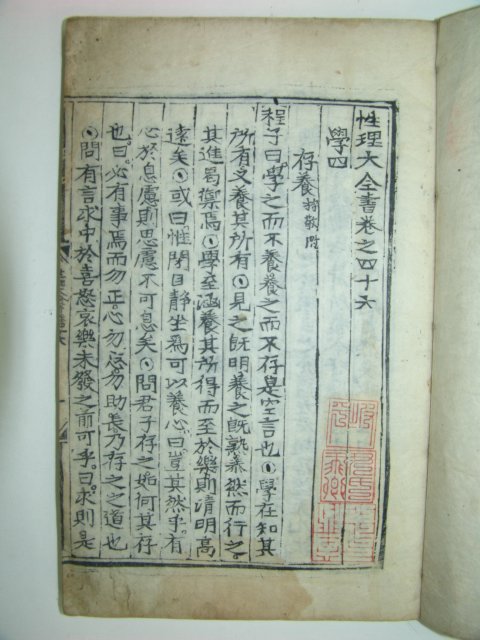 性理大全書卷之四十六
學四
存養持敬附
程子曰學之而不養養之而不存是空言也○學在知其
所有又養其所有○見之旣明養之旣熟泰然而行之
其進曷禦焉○學至涵養其所得而至於樂則清明高
遠矣○或曰惟閉目靜坐爲可以養心曰豈其然乎有
心於息慮則思慮不可息矣○問君子存之如何其存
也曰必有事焉而勿正心勿忘勿助長乃存之之道也
○問有言求中於喜怒哀樂未發之前可乎曰求則是